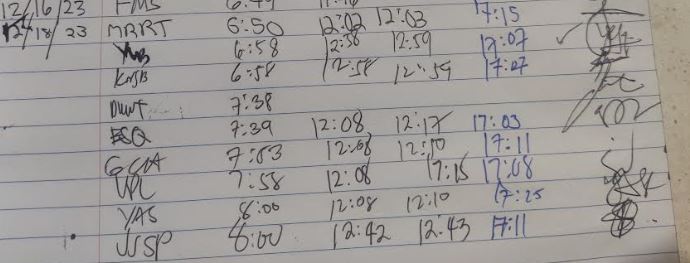 12/16/23 FMS
12/18/23 MRRT 6:50 12:02 12:03 17:15
6:58 12:58 12:59 17:07
KMSB 6:58 12:58 12:59 17:07
7:38
ESQ 7:39 12:08 12:17 17:03
GCIA 7:53 12:08 12:10 17:11
7:58 12:08 17:08
YAS 8:00 12:08 12:10 17:25
JJSP 8:00 12:42 12:43 17:11